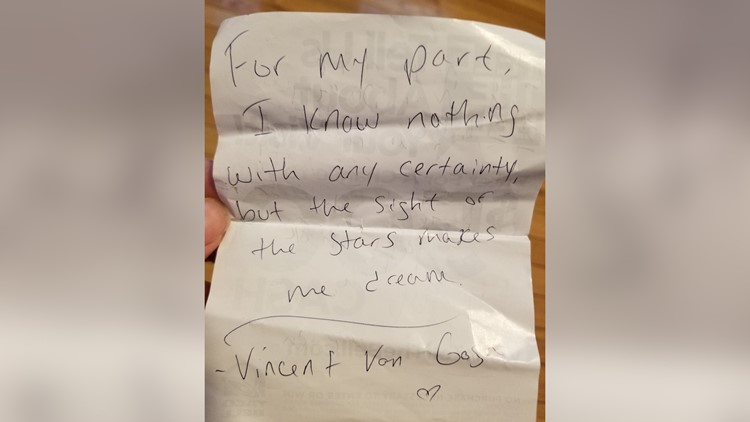 For my part,
I know nothing
with any certainty,
but the sight of
the stars makes
me dream.
-Vincent Van Gogh